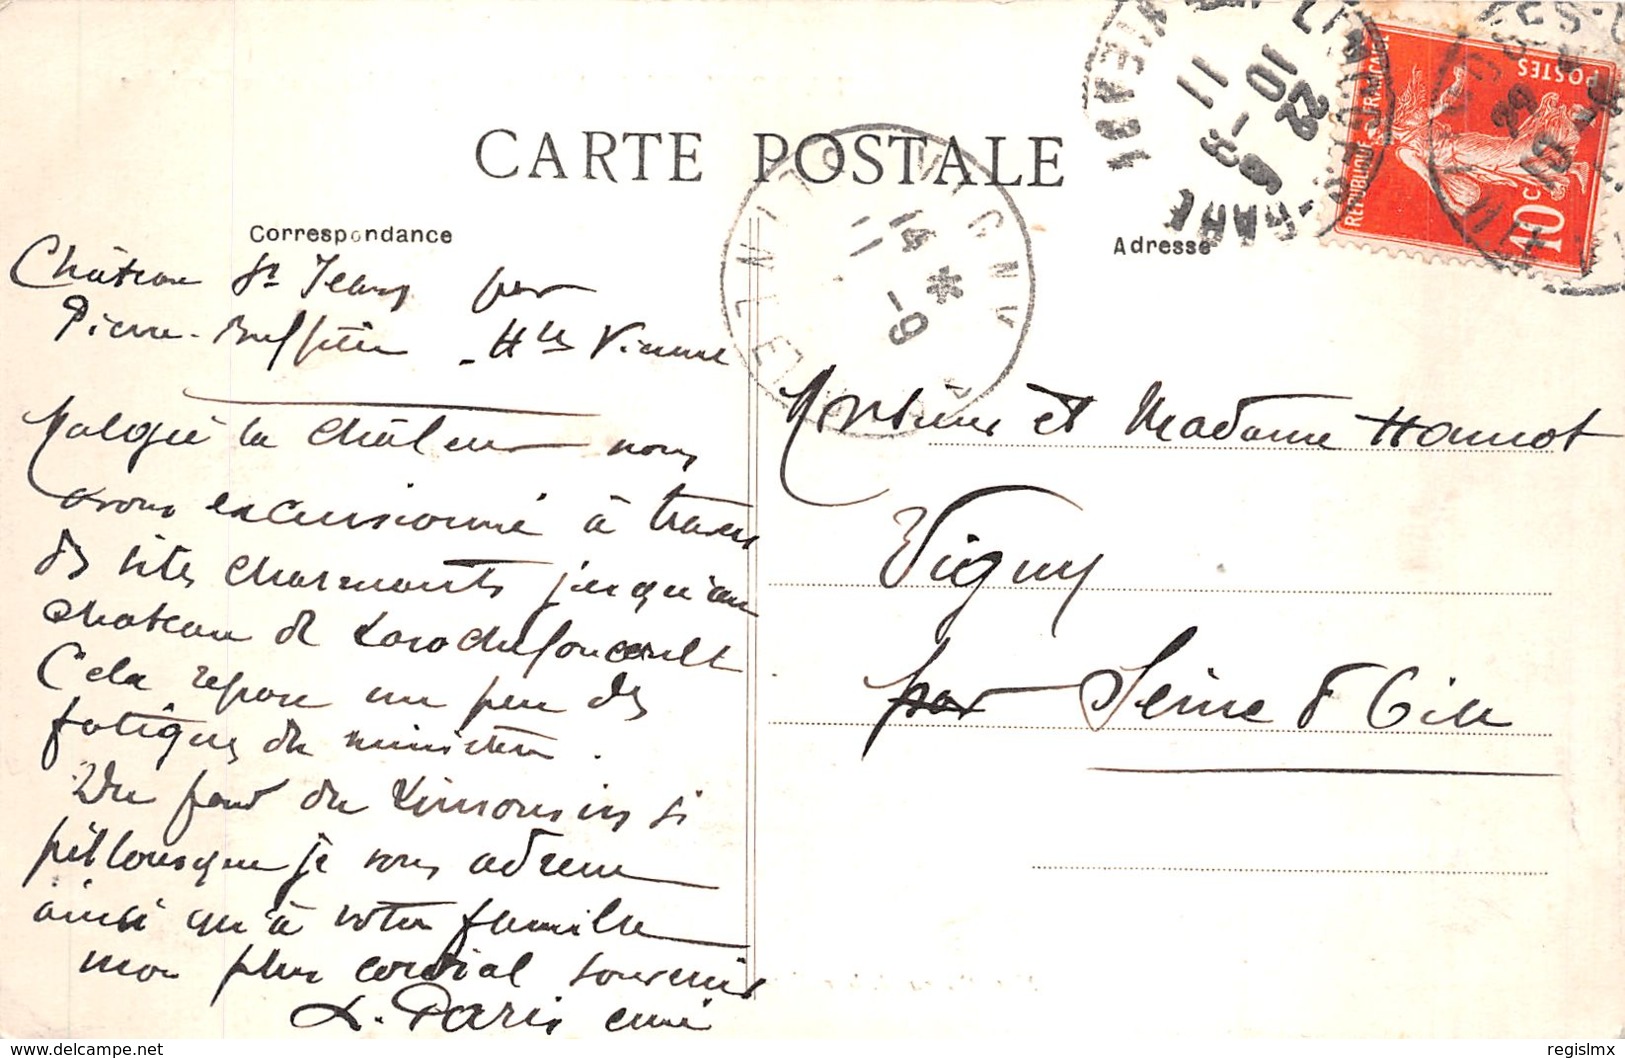 CARTE POSTALE
Correspondance
Château St Jean par
Pierre-Buffière - Hte Vienne
Malgré la chaleur nous
avons excursionné à travers
des sites charmants jusqu'au
chateau de Larochefoucault
Cela repose un peu des
fatigues du ministère.
Du fond du Limousin si
pittoresque je vous adresse
ainsi qu'à votre famille
mon plus cordial souvenir
L. Paris
Adresse
Monsieur et Madame Hannot
Vigny
par Seine & Oise
REPUBLIQUE FRANÇAISE
POSTES
10 c
LIMOGES-GARE
HTE VIENNE
22
10
11 -9
VIGNY
14 * -9
11
delcampe.net
regislmx